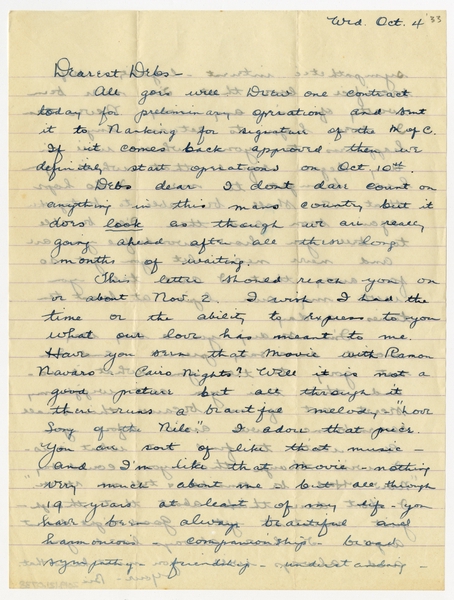 Wed. Oct. 4 '33
Dearest Debs-
All goes well Drew one contract
today for preliminary operation and sent
it to Nanking for signature of the M of C.
If it comes back approved then we
definitely start operations on Oct 10th.
Debs dear I don't dare count on
anything in this mans country but it
does look as though we are really
going ahead after all these long
months of waiting.
This letter should reach you on
or about Nov 2. I wish I had the
time or the ability to express to you
what our love has meant to me.
Have you seen that movie with Ramon
Navaro - Cairo Nights? Well it is not a
good picture but all through it
there runs a beautiful melody, "Love
Song of the Nile". I adore that piece.
You are sort of like that music -
and I'm like that movie - nothing
very much about me - but all through
19 years at least of my life - you
have been always beautiful and
harmonious - companionship - broad
sympathy - friendship - understanding -